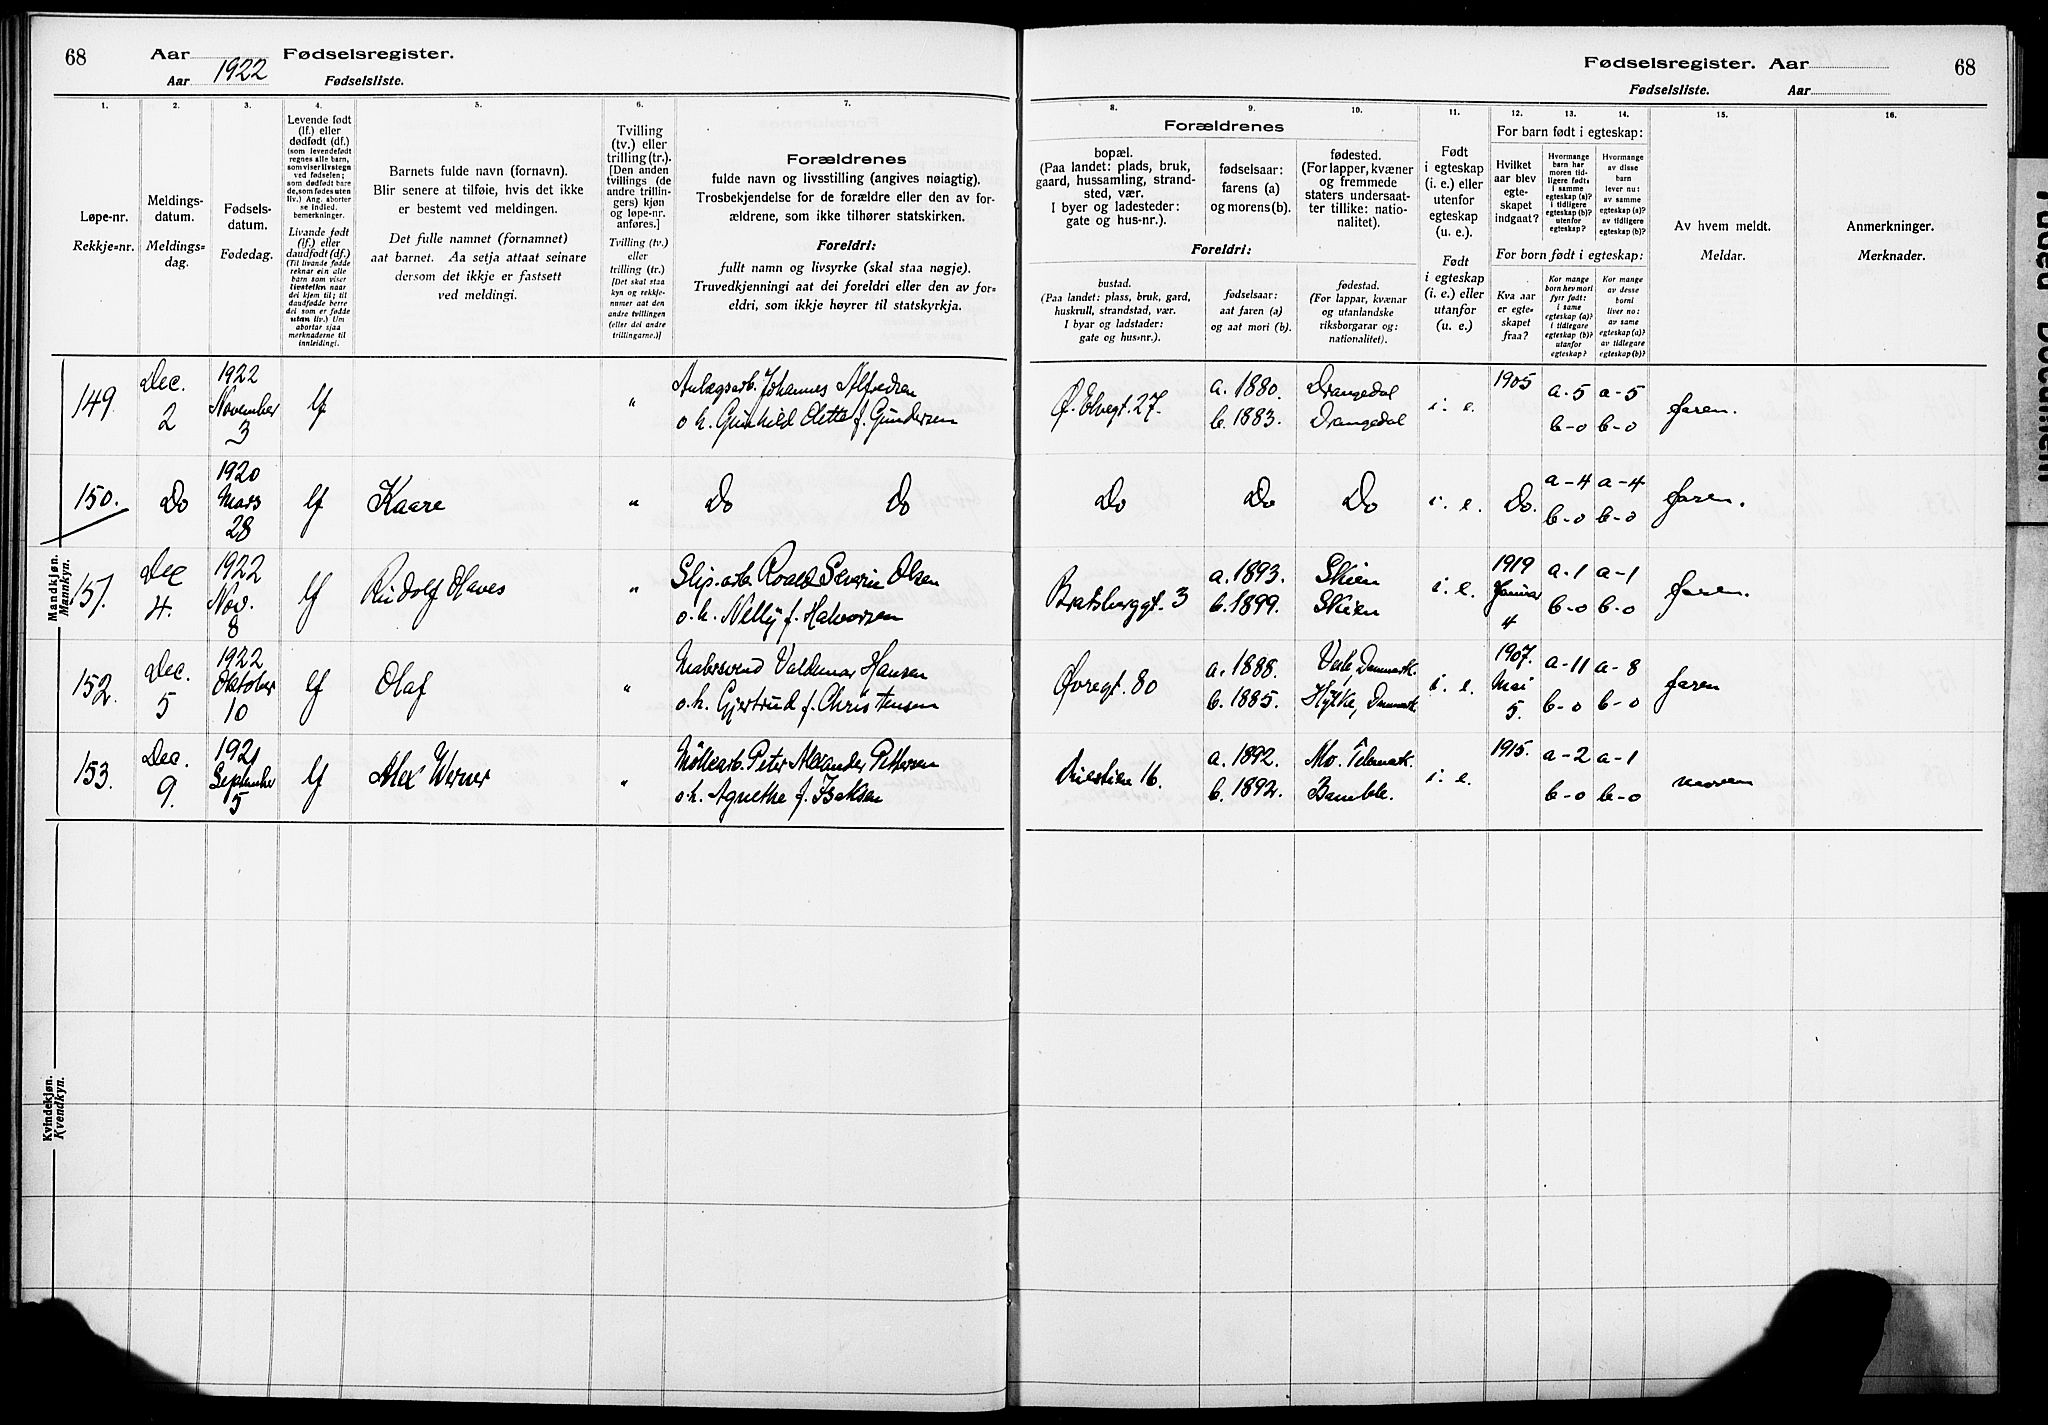 68
Aar 1922 Fødselsregister.
Aar Fødselsliste.
Fødselsregister. Aar
68
Fødselsliste. Aar
1. 2. 3. 4. 5. 6. 7. 8. 9. 10. 11. 12. 13. 14. 15. 16.
Løpe-nr.
Rekkje=nr.
Meldings-
datum.
Meldings=
dag.
Fødsels-
datum.
Fødedag.
Levende født
(lf.) eller
dødfødt (df.)
(som levendefødt
regnes alle barn,
som viser livstegn
ved fødselen;
som dødfødt bare
de, som fødes uten
liv.) Ang. aborter
se indled.
bemerkninger.
Livande født
(lf.) eller
daudfødt (df.)
(Til livande fødde
reknar ein alle
barn som viser
livsteikn naar
dei kjem til; til
daudfødde berre
dei som er fødde
utan liv.) Um
abortar sjaa
merknaderne til
innleidingi.
Barnets fulde navn (fornavn).
Blir senere at tilføie, hvis det ikke
er bestemt ved meldingen.
Det fulle namnet (fornamnet)
aat barnet. Aa setja attaat seinare
dersom det ikkje er fastsett
ved meldingi.
Tvilling
(tv.) eller
trilling (tr.).
[Den anden
tvillings (de
andre trillin-
gers) kjøn
og løpe-nr.
anføres.]
Tvilling (tv.)
eller
trilling (tr.)
[Det skal staa
kyn og rekkje-
nummer aat den
andre tvillingen
(eller dei andre
trillingarne.)]
Forældrenes
fulde navn og livsstilling (angives nøiagtig).
Trosbekjendelse for de forældre eller den av for-
ældrene, som ikke tilhører statskirken.
Foreldri:
fullt namn og livsyrke (skal staa nøgje).
Truvedkjenningi aat dei foreldri eller den av for=
eldri, som ikkje høyrer til statskyrkja.
Forældrenes
bopæl.
(Paa landet: plads, bruk,
gaard, hussamling, strand-
sted, vær.
I byer og ladesteder:
gate og hus-nr.).
fødselsaar:
farens (a)
og morens (b).
fødested.
(For lapper, kvæner
og fremmede
staters undersaat-
ter tillike: natio-
nalitet).
Foreldri:
bustad.
(Paa landet: plass, bruk, gard,
huskrull, strandstad, vær.
I byar og ladstader:
gate og hus=nr.).
fødselsaar:
aat faren (a)
og aat mori (b).
fødestad.
(For lappar, kvænar
og utanlandske
riksborgarar og:
nationalitet).
Født
i egteskap
(i. e.) eller
utenfor
egteskap
(u. e.).
Født
i egteskap
(i. e.) eller
utanfor
(u. e.).
For barn født i egteskap:
Hvilket
aar blev
egte-
skapet
indgaat?
Hvormange
barn har
moren tid-
ligere født:
i samme
egteskap (a)?
i tidligere
egteskap (b)?
utenfor
egteskap?
Hvormange
av disse
barn
lever nu:
av samme
egteskap (a)?
av tidligere
egteskap (b)?
For born født i egteskap:
Kva aar
er egte-
skapet
fraa?
Kor mange
born hev mori
fyrr født:
i same
egteskap (a)?
i tidlegare
egteskap (b)?
utanfor
egteskap?
Kor mange
av desse
borni
liver no:
av same
egteskap (a)?
av tidlegare
egteskap (b)?
Av hvem meldt.
Meldar.
Anmerkninger.
Merknader.
Mandkjøn.
Mannkyn.
Kvindekjøn.
Kvendkyn.
149. Dec. 2 1922 November 3 lf " Anlægsarb. Johannes Alfredsen
o. h. Gunhild Olette f. Gundersen
Ø. Elvegt. 27. a. 1880. Drangedal i. e. 1905 a-5 a-5 faren.
b. 1883. Drangedal b-0 b-0
150. Do 1920 Mars 28 lf Kaare " Do Do Do Do Do i. e. Do. a-4 a-4 faren.
b-0 b-0
151. Dec 4. 1922 Nov. 8 lf Rudolf Haves " Slip.arb. Roald Severin Olsen
o. h. Nelly f. Halvorsen
Bratsberggt. 3 a. 1893. Skien i. e. 1919 Januar 4 a-1 a-1 faren.
b. 1899. Skien b-0 b-0
152. Dec. 5 1922 Oktober 10 lf Olaf " Malersvend Valdemar Hansen
o. h. Gjertrud f. Christensen
Øvregt. 80 a. 1888. Veile, Danmark. i. e. 1907. Mai 5. a-11 a-8 faren
b. 1885. Hylke, Danmark. b-0 b-0
153. Dec. 9. 1921 September 5 lf Alex Werner " Møllearb. Peter Alexander Pettersen
o. h. Agnethe f. Isaksen
16. a. 1892. Mo. Telemark. i. e. 1915. a-2 a-1 moren
b. 1892. Bamble. b-0 b-0